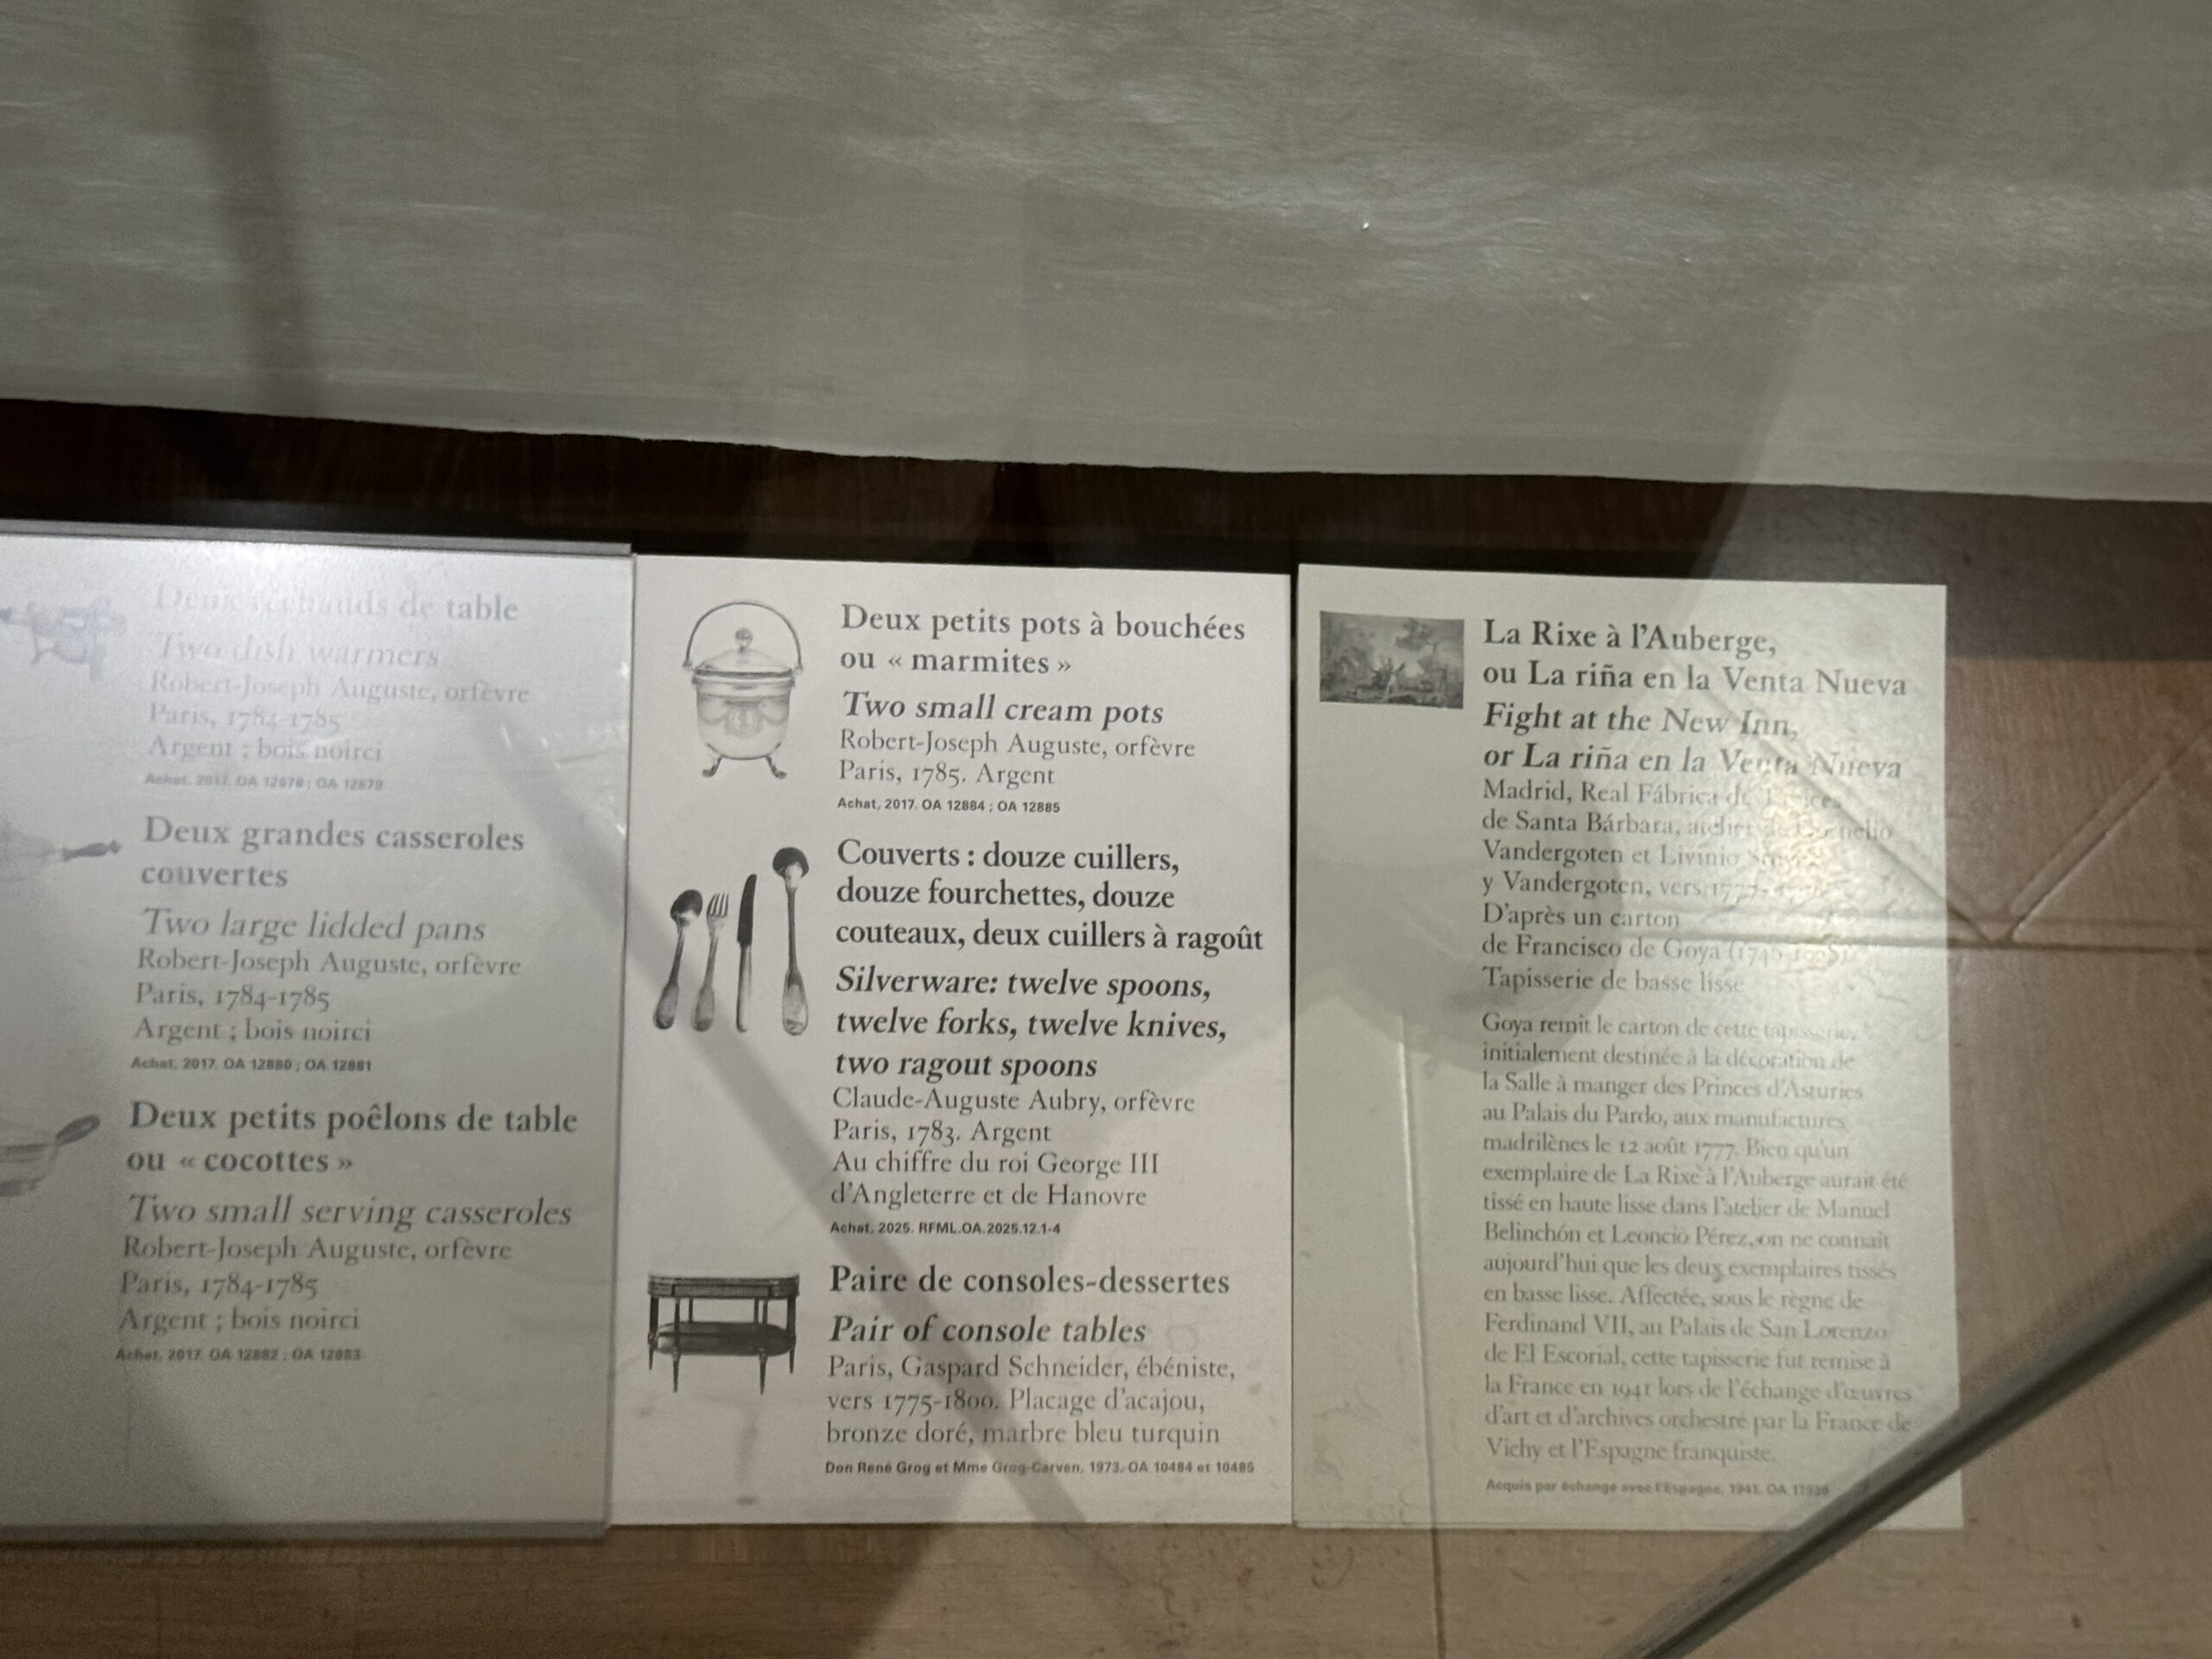 Deux réchauds de table
Two dish warmers
Robert-Joseph Auguste, orfèvre
Paris, 1784-1785
Argent ; bois noirci
Achat, 2017. OA 12878 ; OA 12879
Deux grandes casseroles
couvertes
Two large lidded pans
Robert-Joseph Auguste, orfèvre
Paris, 1784-1785
Argent ; bois noirci
Achat, 2017. OA 12880 ; OA 12881
Deux petits poêlons de table
ou « cocottes »
Two small serving casseroles
Robert-Joseph Auguste, orfèvre
Paris, 1784-1785
Argent ; bois noirci
Achat, 2017. OA 12882 ; OA 12883
Deux petits pots à bouchées
ou « marmites »
Two small cream pots
Robert-Joseph Auguste, orfèvre
Paris, 1785. Argent
Achat, 2017. OA 12884 ; OA 12885
Couverts : douze cuillers,
douze fourchettes, douze
couteaux, deux cuillers à ragoût
Silverware: twelve spoons,
twelve forks, twelve knives,
two ragout spoons
Claude-Auguste Aubry, orfèvre
Paris, 1783. Argent
Au chiffre du roi George III
d'Angleterre et de Hanovre
Achat, 2025. RFML.OA.2025.12.1-4
Paire de consoles-dessertes
Pair of console tables
Paris, Gaspard Schneider, ébéniste,
vers 1775-1800. Placage d'acajou,
bronze doré, marbre bleu turquin
Don René Grog et Mme Grog-Carven, 1973. OA 10484 et 10485
La Rixe à l'Auberge,
ou La riña en la Venta Nueva
Fight at the New Inn,
or La riña en la Venta Nueva
Madrid, Real Fábrica de Tapices
de Santa Bárbara, atelier de Cornelio
Vandergoten et Livinio
y Vandergoten, vers
D'après un carton
de Francisco de Goya
Tapisserie de basse lisse
Goya remit le carton de cette tapisserie,
initialement destinée à la décoration de
la Salle à manger des Princes d'Asturies
au Palais du Pardo, aux manufactures
madrilènes le 12 août 1777. Bien qu'un
exemplaire de La Rixe à l'Auberge aurait été
tissé en haute lisse dans l'atelier de Manuel
Belinchón et Leoncio Pérez, on ne connaît
aujourd'hui que les deux exemplaires tissés
en basse lisse. Affectée, sous le règne de
Ferdinand VII, au Palais de San Lorenzo
de El Escorial, cette tapisserie fut remise à
la France en 1941 lors de l'échange d'œuvres
d'art et d'archives orchestré par la France de
Vichy et l'Espagne franquiste.
Acquis par échange avec l'Espagne, 1941. OA